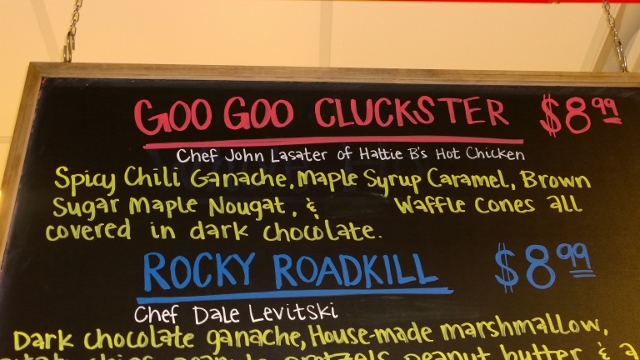 GOO GOO CLUCKSTER $8.99
Chef John Lasater of Hattie B's Hot Chicken
Spicy Chili Ganache, Maple Syrup Caramel, Brown
Sugar Maple Nougat, & Waffle Cones all
covered in dark chocolate.
ROCKY ROADKILL $8.99
Chef Dale Levitski
Dark chocolate ganache, House-made marshmallow,
pretzels, peanut butter, & a